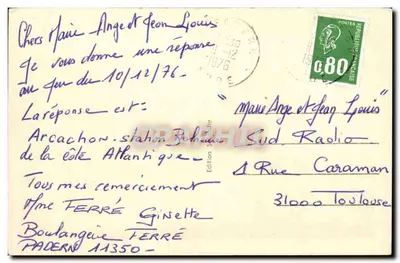 Chers Marie Ange et Jean Louis
Je vous donne une réponse
au jeu du 10/12/76-
La réponse est:
Arcachon. station Balnéaire
de la côte Atlantique-
Tous mes remerciement
Mme FERRÉ Ginette
Boulangerie FERRÉ
PADERN 11350-
POSTES
0,80
REPUBLIQUE FRANÇAISE
1976
"Marie Ange et Jean Louis"
Sud Radio
1 Rue Caraman
31000 Toulouse